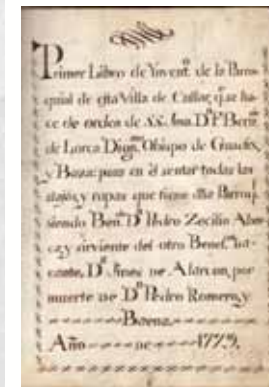 Primer Libro de Ynventº. de la Parro
quial de esta Villa de Cullar, q. se ha
ce de orden de S.S. Ima. Dn. Fr. Bern.
de Lorca Dign.mo Obispo de Guadix,
y Baza: para en él sentar todas las
alajas, y ropas que tiene dha Parroq.
siendo Ben.do Dn. Pedro Zecilio Abe
y sirviente del otro Benef.
cante, Dn. Jines de Alarcon, por
muerte de Dn. Pedro Romero, y
Baena.
Año de 1779.